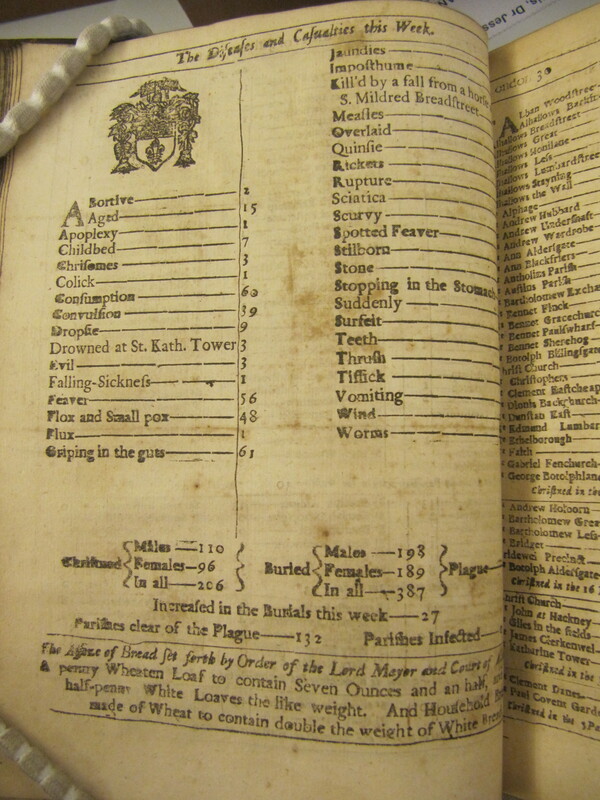 The Diseases and Casualties this Week.
Abortive 2
Aged 15
Apoplexy 1
Childbed 7
Chrisomes 3
Colick 1
Consumption 60
Convulsion 39
Dropsie 9
Drowned at St. Kath. Tower 3
Evil 3
Falling-Sickness 1
Feaver 56
Flox and Small pox 48
Flux 1
Griping in the guts 61
Jaundies
Imposthume
Kill'd by a fall from a horse
S. Mildred Breadstreet
Measles
Overlaid
Quinsie
Rickets
Rupture
Sciatica
Scurvy
Spotted Feaver
Stilborn
Stone
Stopping in the Stomach
Suddenly
Surfeit
Teeth
Thrush
Tissick
Vomiting
Wind
Worms
Christned Males 110 Females 96 In all 206
Buried Males 198 Females 189 In all 387
Plague
Increased in the Burials this week 27
Parishes clear of the Plague 132 Parishes Infected
The Assize of Bread set forth by Order of the Lord Mayor and Court of
A penny Wheaten Loaf to contain Seven Ounces and an half,
half-penny White Loaves the like weight. And Household
made of Wheat to contain double the weight of White
Dr Jess
ondon 30
Alban Woodstree
Alhallows Barkin
Alhallows Breadstreet
lhallows Great
lhallows Honilane
lhallows Less
lhallows Lumbardstree
lhallows Stayning
lhallows the Wall
Alphage
Andrew Hubbard
Andrew Undershaft
Andrew Wardrobe
Ann Aldersgate
Ann Blackfriers
Antholins Parish
Austins Parish
Bartholomew Excha
Bennet Finck
Bennet Gracechurc
Bennet Paulswharf
Bennet Sherehog
Botolph Billingsgate
hrist Church
Christophers
Clement Eastcheap
Dionis Backchurch
Dunstan East
Edmund Lumbar
Ethelborough
Faith
Gabriel Fenchurch
George Botolphlane
Christned in the
Andrew Holborn
Bartholomew Grea
Bartholomew Less
Bridget
ridewel Precinct
Botolph Aldersgate
Christned in the 16
hrist Church
John at Hackney
Giles in the fields
James Clerkenwel
Katharine Tower
Christned in the
Clement Danes
Paul Covent Garde
Christned in the 5 Pa